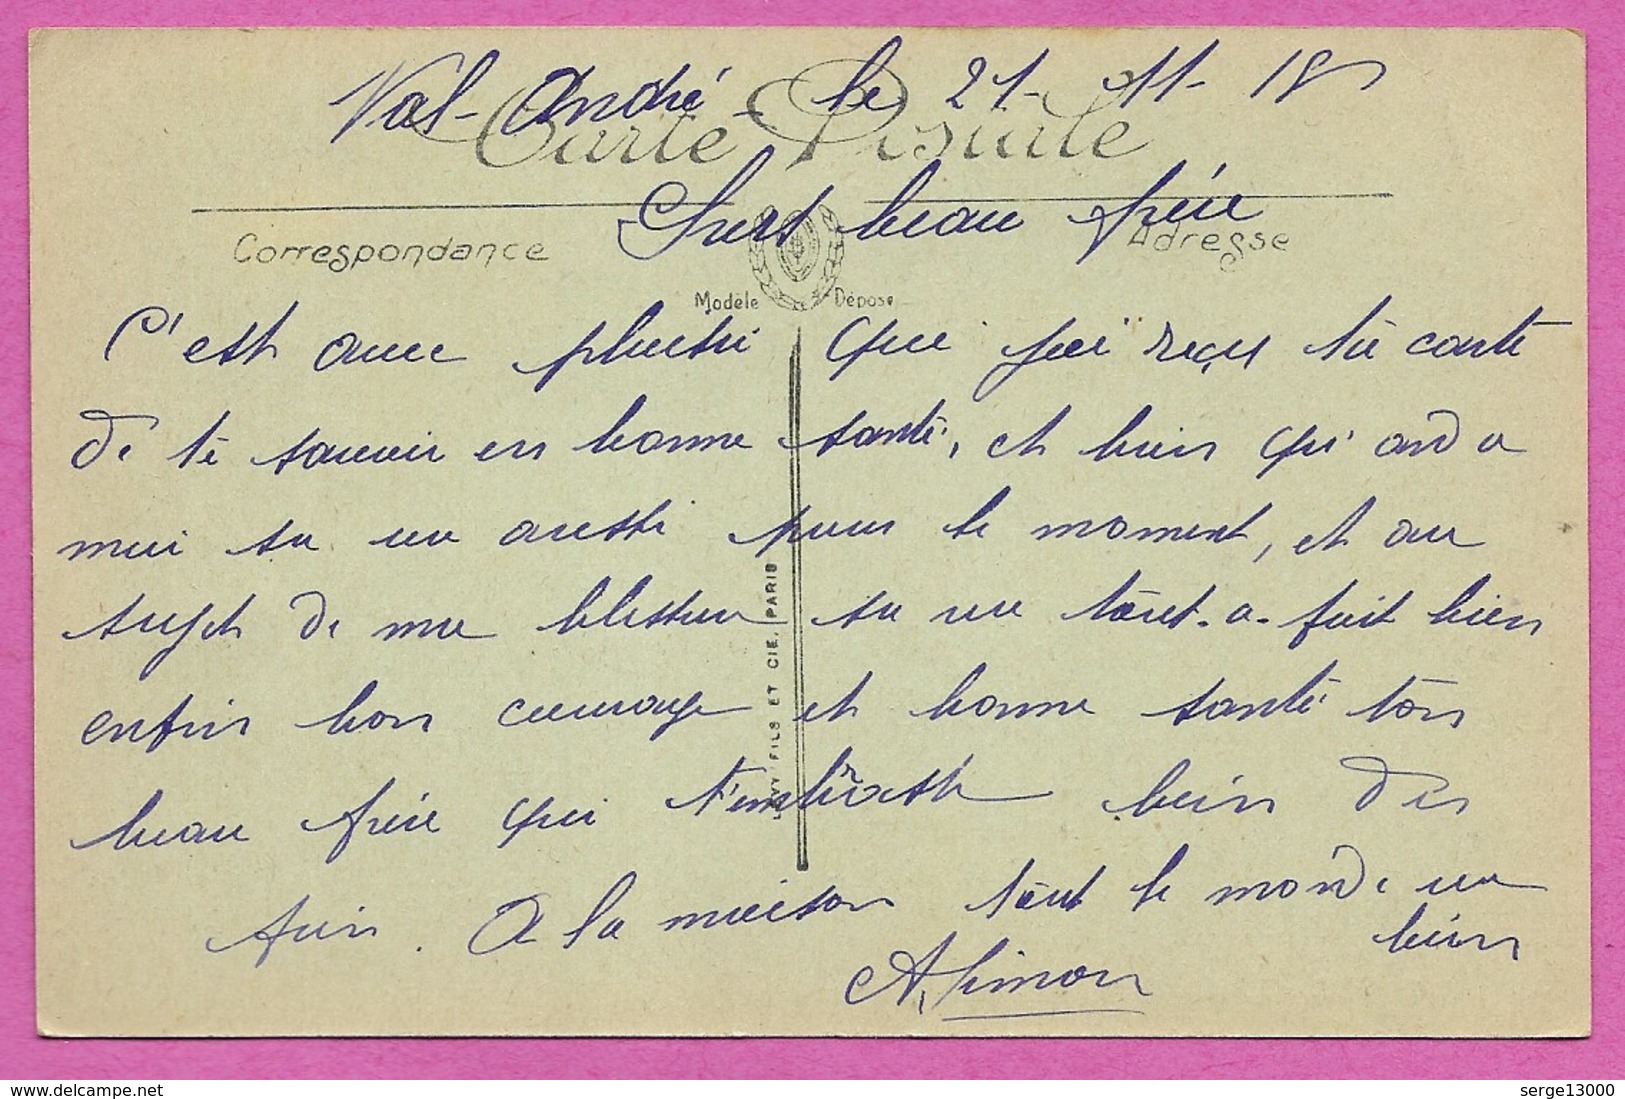 Val-André le 21-11-15
Carte Postale
Chers beau frère
Correspondance
Adresse
Modèle Déposé
C'est avec pluesir que j'ai reçu ta carte
de te savoir en bonne santé, et bien qu'and a
moi sa va aussi pour le moment, et au
sujet de ma blessure sa va tout-a-fait bien
enfin bon courage et bonne santé ton
beau frère qui t'embrasse bien des
fois. A la maison tout le monde va
bien
A. Simon
LEVY FILS ET CIE. PARIS
www.delcampe.net
serge13000